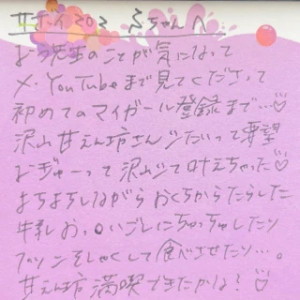 ちゃんへ
のことが気になって
X・YouTubeまで見てくださって
初めてのマイガール登録まで…♡
沢山甘えん坊さんしたいって要望
ぎゅーって沢山して叶えちゃった♡
よちよちしながらおくちからたらした
ごしにちゅっちゅしたり
して食べさせたり…。
甘えん坊満喫できたかな!♡